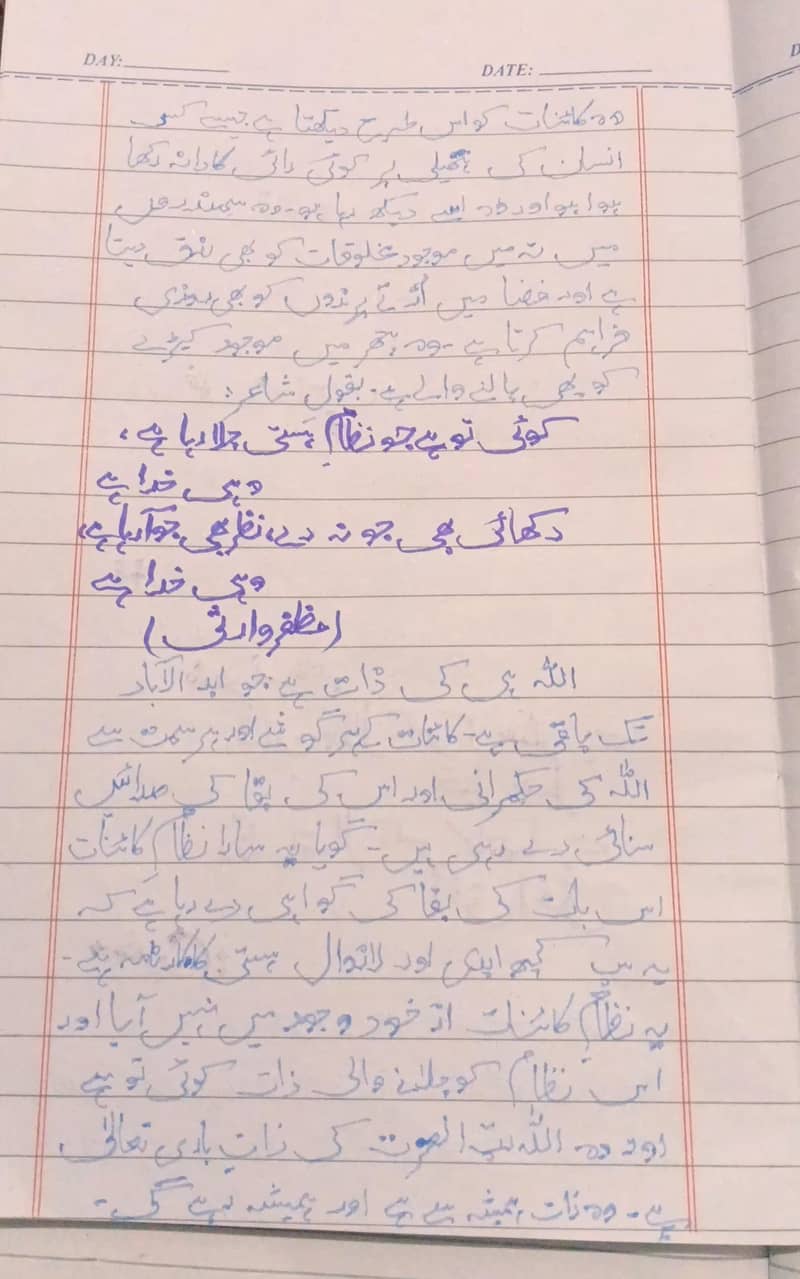 DAY:
DATE:
وہ کائنات کو اس طرح دیکھتا ہے جیسے کسی
انسان کی ہتھیلی پر کوئی رائی کا دانہ رکھا
ہوا ہو اور وہ اسے دیکھ رہا ہو۔ وہ سمندروں
میں تہ میں موجود مخلوقات کو بھی رزق دیتا
ہے اور فضا میں اُڑتے پرندوں کو بھی روزی
فراہم کرتا ہے۔ وہ پتھر میں موجود کیڑے
کو بھی پالنے والے ہے۔ بقول شاعر:
کوئی تو ہے جو نظامِ ہستی چلا رہا ہے،
وہی خدا ہے
دکھائی بھی جو نہ دے، نظر بھی جو آرہا ہے،
وہی خدا ہے
(مظفر وارثی)
اللہ ہی کی ذات ہے جو ابد الآباد
تک باقی ہے۔ کائنات کے ہر گوشے اور ہر سمت سے
اللہ کی حکمرانی اور اس کی بقا کی صدائیں
سنائی دے رہی ہیں۔ گویا یہ سارا نظام کائنات
اس بات کی بقا کی گواہی دے رہا ہے کہ
یہ سب کچھ ابدی اور لازوال ہستی کا کارنامہ ہے۔
یہ نظام کائنات از خود وجود میں نہیں آیا اور
اس نظام کو چلانے والی ذات کوئی تو ہے
اور وہ اللہ رب العزت کی ذاتِ باری تعالیٰ
ہے۔ وہ ذات ہمیشہ سے ہے اور ہمیشہ رہے گی۔